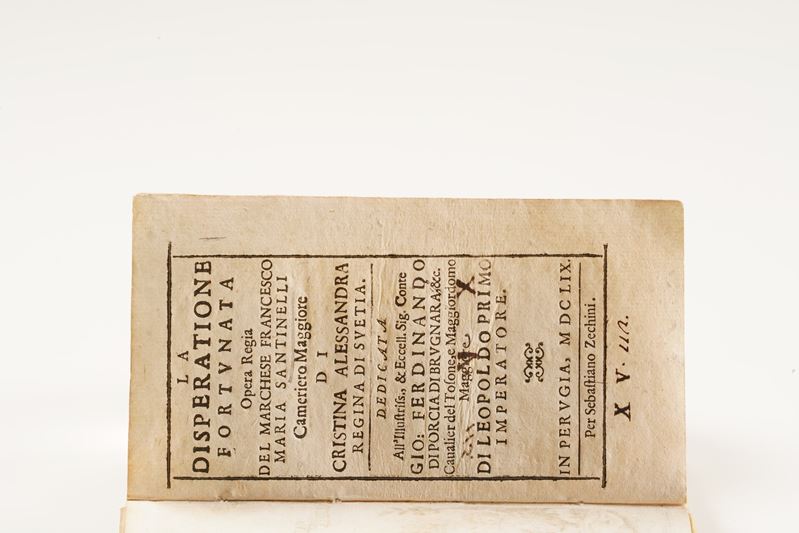 LA
DISPERATIONE
FORTVNATA
Opera Regia
DEL MARCHESE FRANCESCO
MARIA SANTINELLI
Cameriero Maggiore
DI
CRISTINA ALESSANDRA
REGINA DI SVETIA.
DEDICATA
All'Illustriss., & Eccell. Sig. Conte
GIO: FERDINANDO
DI PORCIA DI BRVGNARA, &c.
Caualier del Tosone, e Maggiordomo
Maggiore
DI LEOPOLDO PRIMO
IMPERATORE.
IN PERVGIA, M DC LIX.
Per Sebastiano Zecchini.
X V.